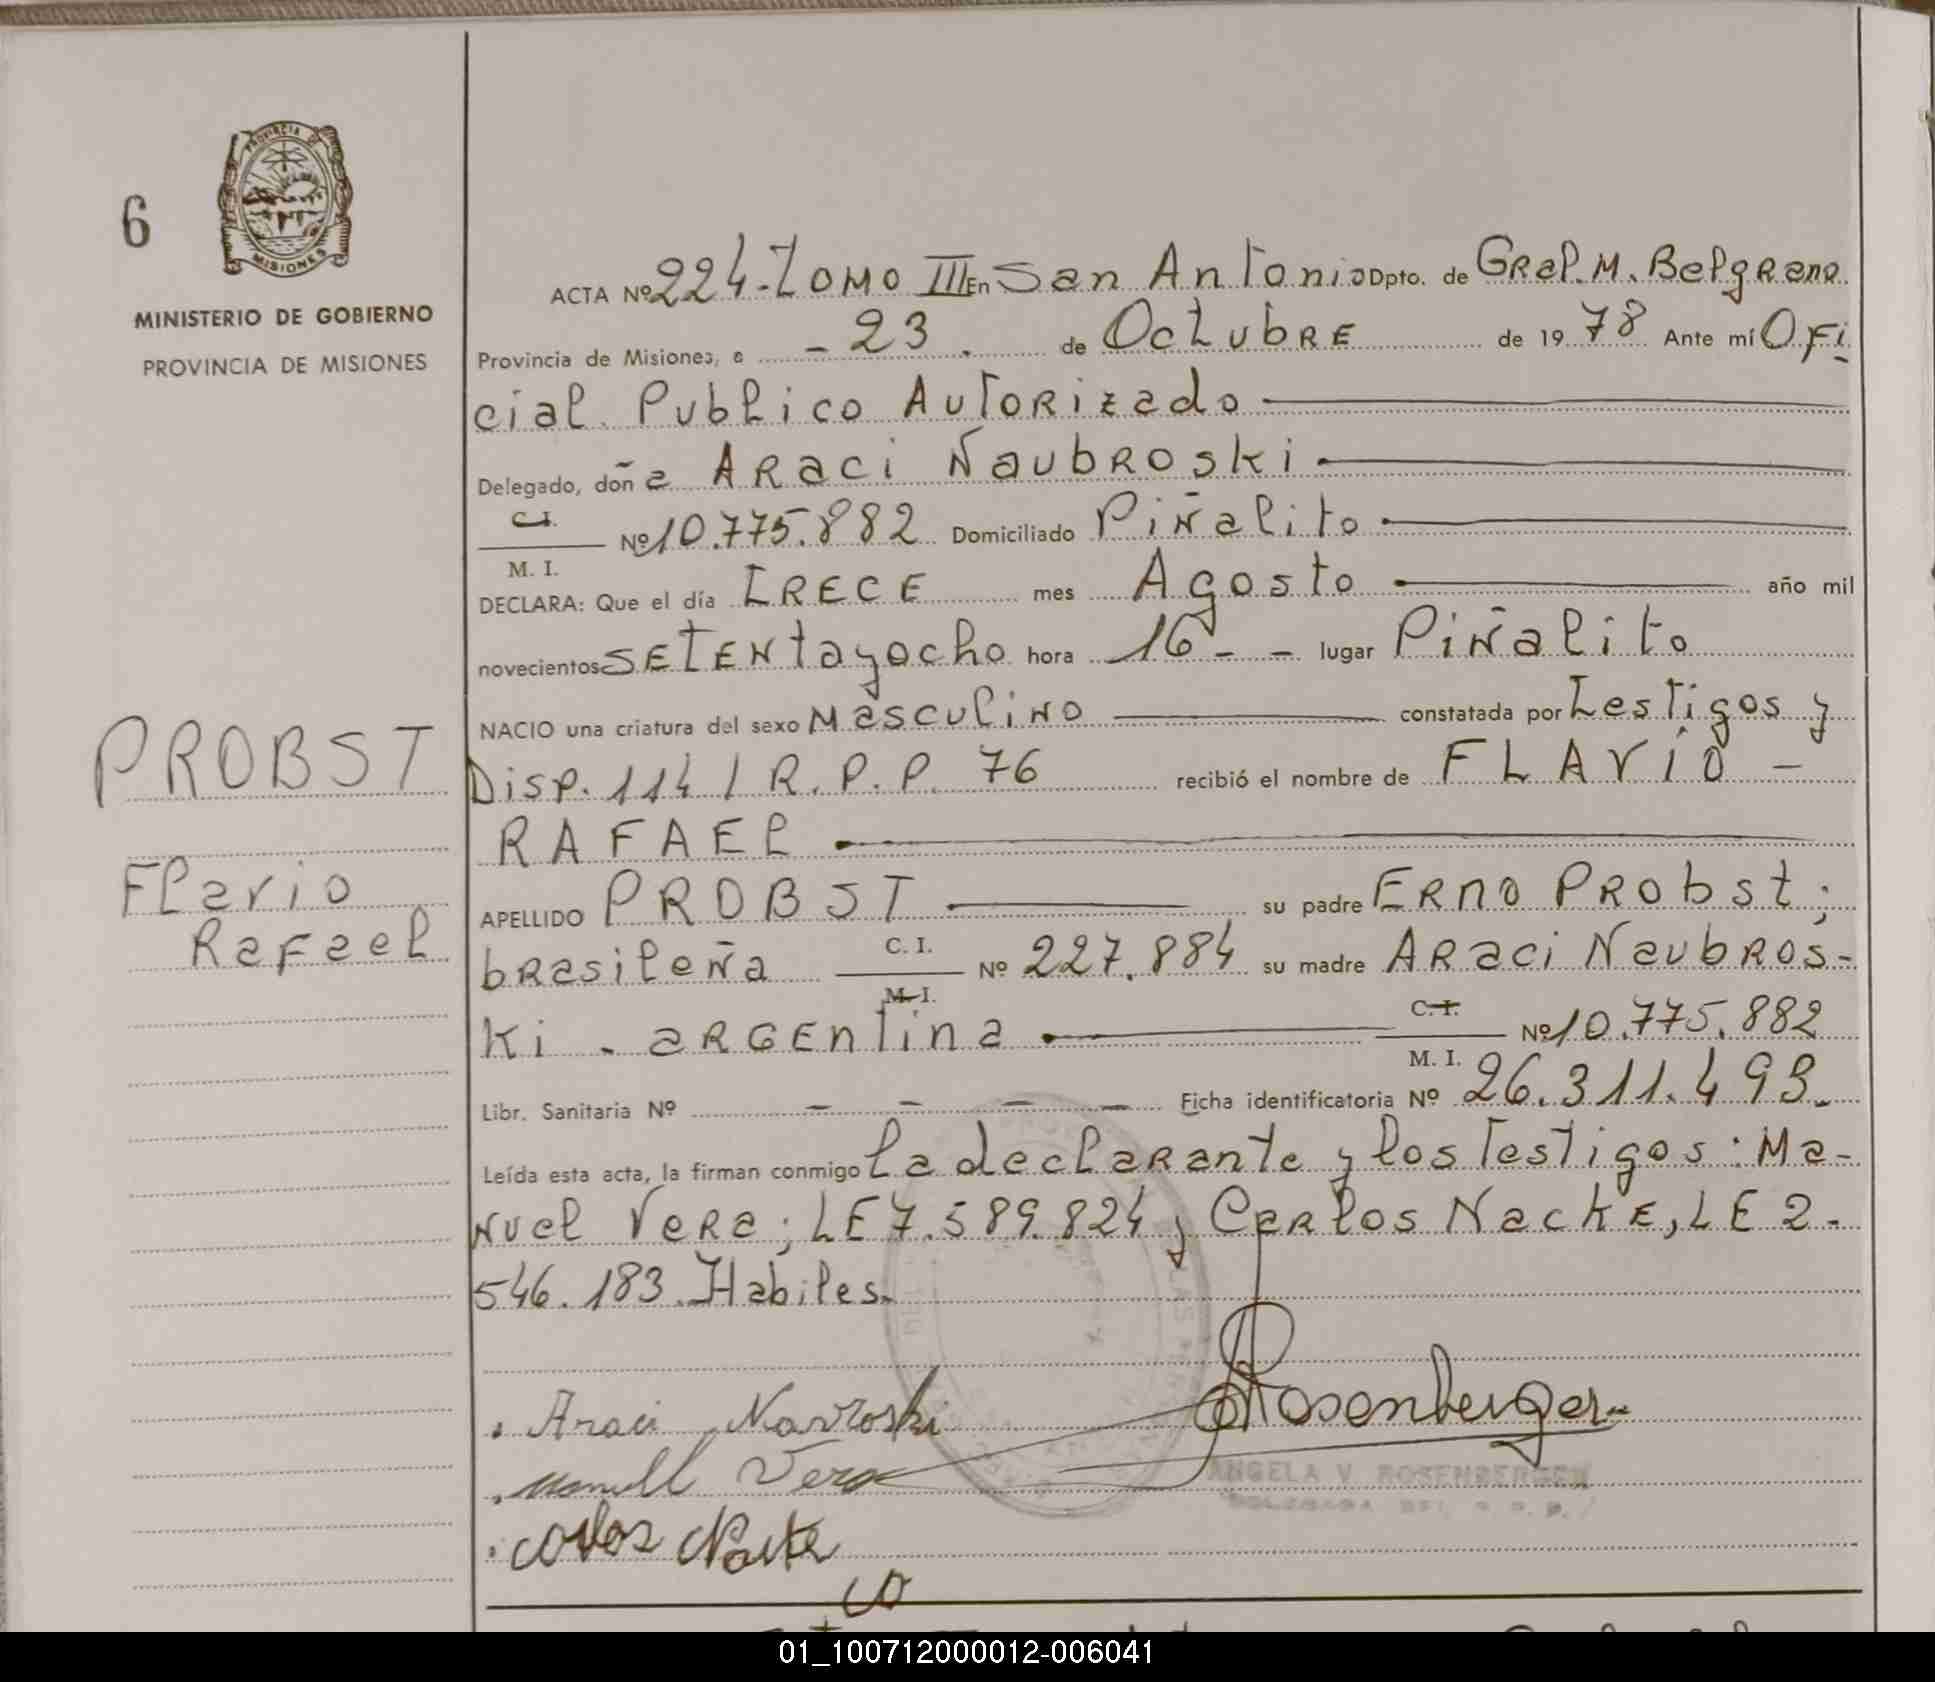 6
PROVINCIA DE
MISIONES
MINISTERIO DE GOBIERNO
PROVINCIA DE MISIONES
PROBST
Flavio
Rafael
ACTA Nº 224-Tomo III En San Antonio Dpto. de Gral. M. Belgrano
Provincia de Misiones, a - 23. de Octubre de 19 78 Ante mí Ofi
cial Publico Autorizado
Delegado, doña Araci Naubroski
C.I. Nº 10.775.882 Domiciliado Piñalito
M. I.
DECLARA: Que el día TRECE mes Agosto año mil
novecientos SETENtayocho hora 16 - - lugar Piñalito
NACIO una criatura del sexo Masculino constatada por Testigos y
Disp. 114 / R. P. P. 76 recibió el nombre de FLAVIO -
RAFAEL
APELLIDO PROBST su padre Erno Probst;
brasileña C. I. Nº 227.884 su madre Araci Naubros-
M. I.
ki - argentina C. I. Nº 10.775.882
M. I.
Libr. Sanitaria Nº - - - - Ficha identificatoria Nº 26.311.493.
Leída esta acta, la firman conmigo la declarante y los Testigos: Ma-
nuel Vera; LE 7.589.824 y Carlos Nacke, LE 2.
546.183. Habiles.
Araci Navroski
Rosenberger
Manuel Vera
ANGELA V. ROSENBERGER
Carlos Nacke
01_100712000012-006041